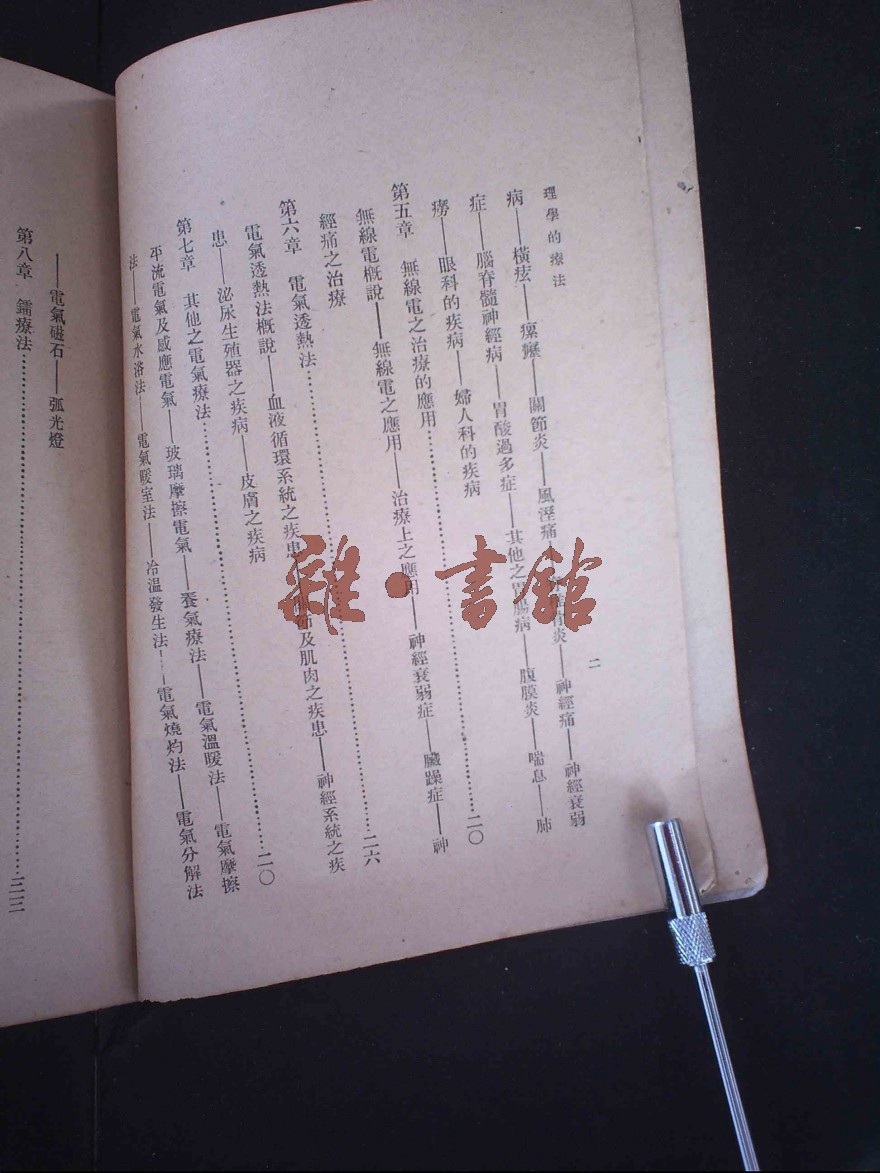 理學的療法
二
病——橫痃——瘰癧——關節炎——風溼痛——炎——神經痛——神經衰弱
症——腦脊髓神經病——胃酸過多症——其他之胃腸病——腹膜炎——喘息——肺
癆——眼科的疾病——婦人科的疾病
第五章 無線電之治療的應用…………二〇
無線電概說——無線電之應用——治療上之應用——神經衰弱症——臟躁症——神
經痛之治療
第六章 電氣透熱法…………二六
電氣透熱法概說——血液循環系統之疾患——關節及肌肉之疾患——神經系統之疾
患——泌尿生殖器之疾病——皮膚之疾病
第七章 其他之電氣療法…………二〇
平流電氣及感應電氣——玻璃摩擦電氣——養氣療法——電氣溫暖法——電氣摩擦
法——電氣水浴法——電氣暖室法——冷溫發生法——電氣燒灼法——電氣分解法
——電氣磁石——弧光燈
第八章 鐳療法…………三三
雜·書館